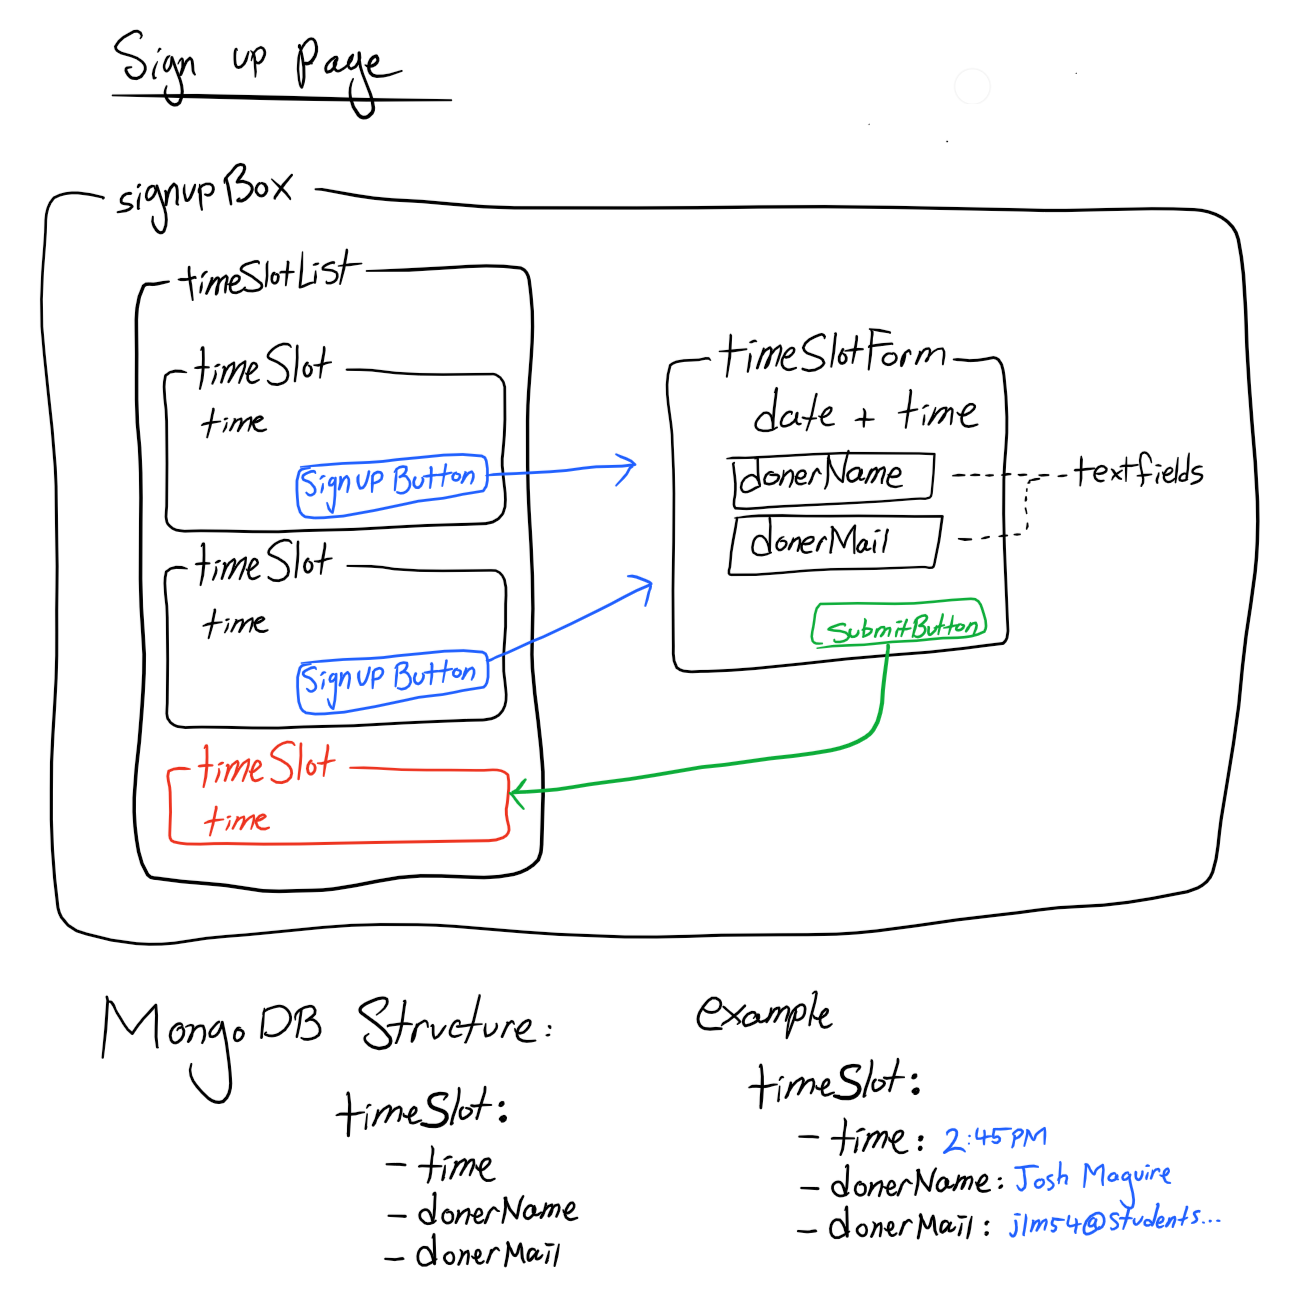 Sign up page
signupBox
timeSlotList
timeSlot
time
Signup Button
timeSlot
time
Signup Button
timeSlot
time
timeSlotForm
date + time
donerName
donerMail
textfields
SubmitButton
MongoDB Structure:
timeSlot:
- time
- donerName
- donerMail
example
timeSlot:
- time: 2:45PM
- donerName: Josh Maguire
- donerMail: jlm54@students...